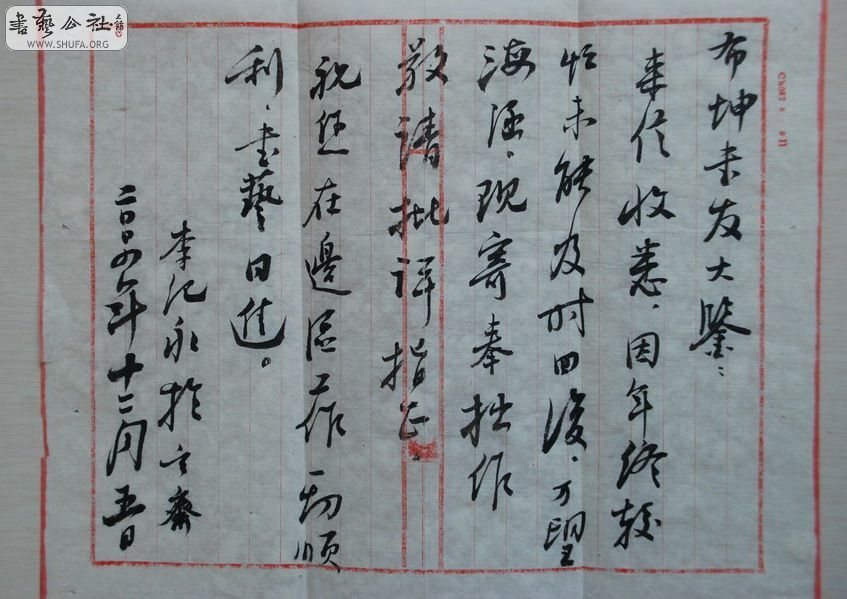 布坤書友大鑒：
来信收悉，因年终较
忙未能及时回復，万望
海涵，现寄奉拙作
敬请批评指正。
祝您在邊區工作一切顺
利，書藝日進。
李記永於 齋
二〇〇四年十二月五日
書藝公社
WWW.SHUFA.ORG